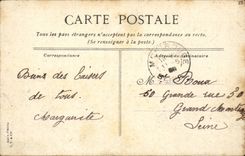 CARTE POSTALE
Tous les pays étrangers n'acceptent pas la correspondance au recto.
(Se renseigner à la poste).
Correspondance
Adresse du Destinataire
Bons des baisers
de tous.
Marguerite
M
60 Grande rue 50
Grand Montrouge
Seine